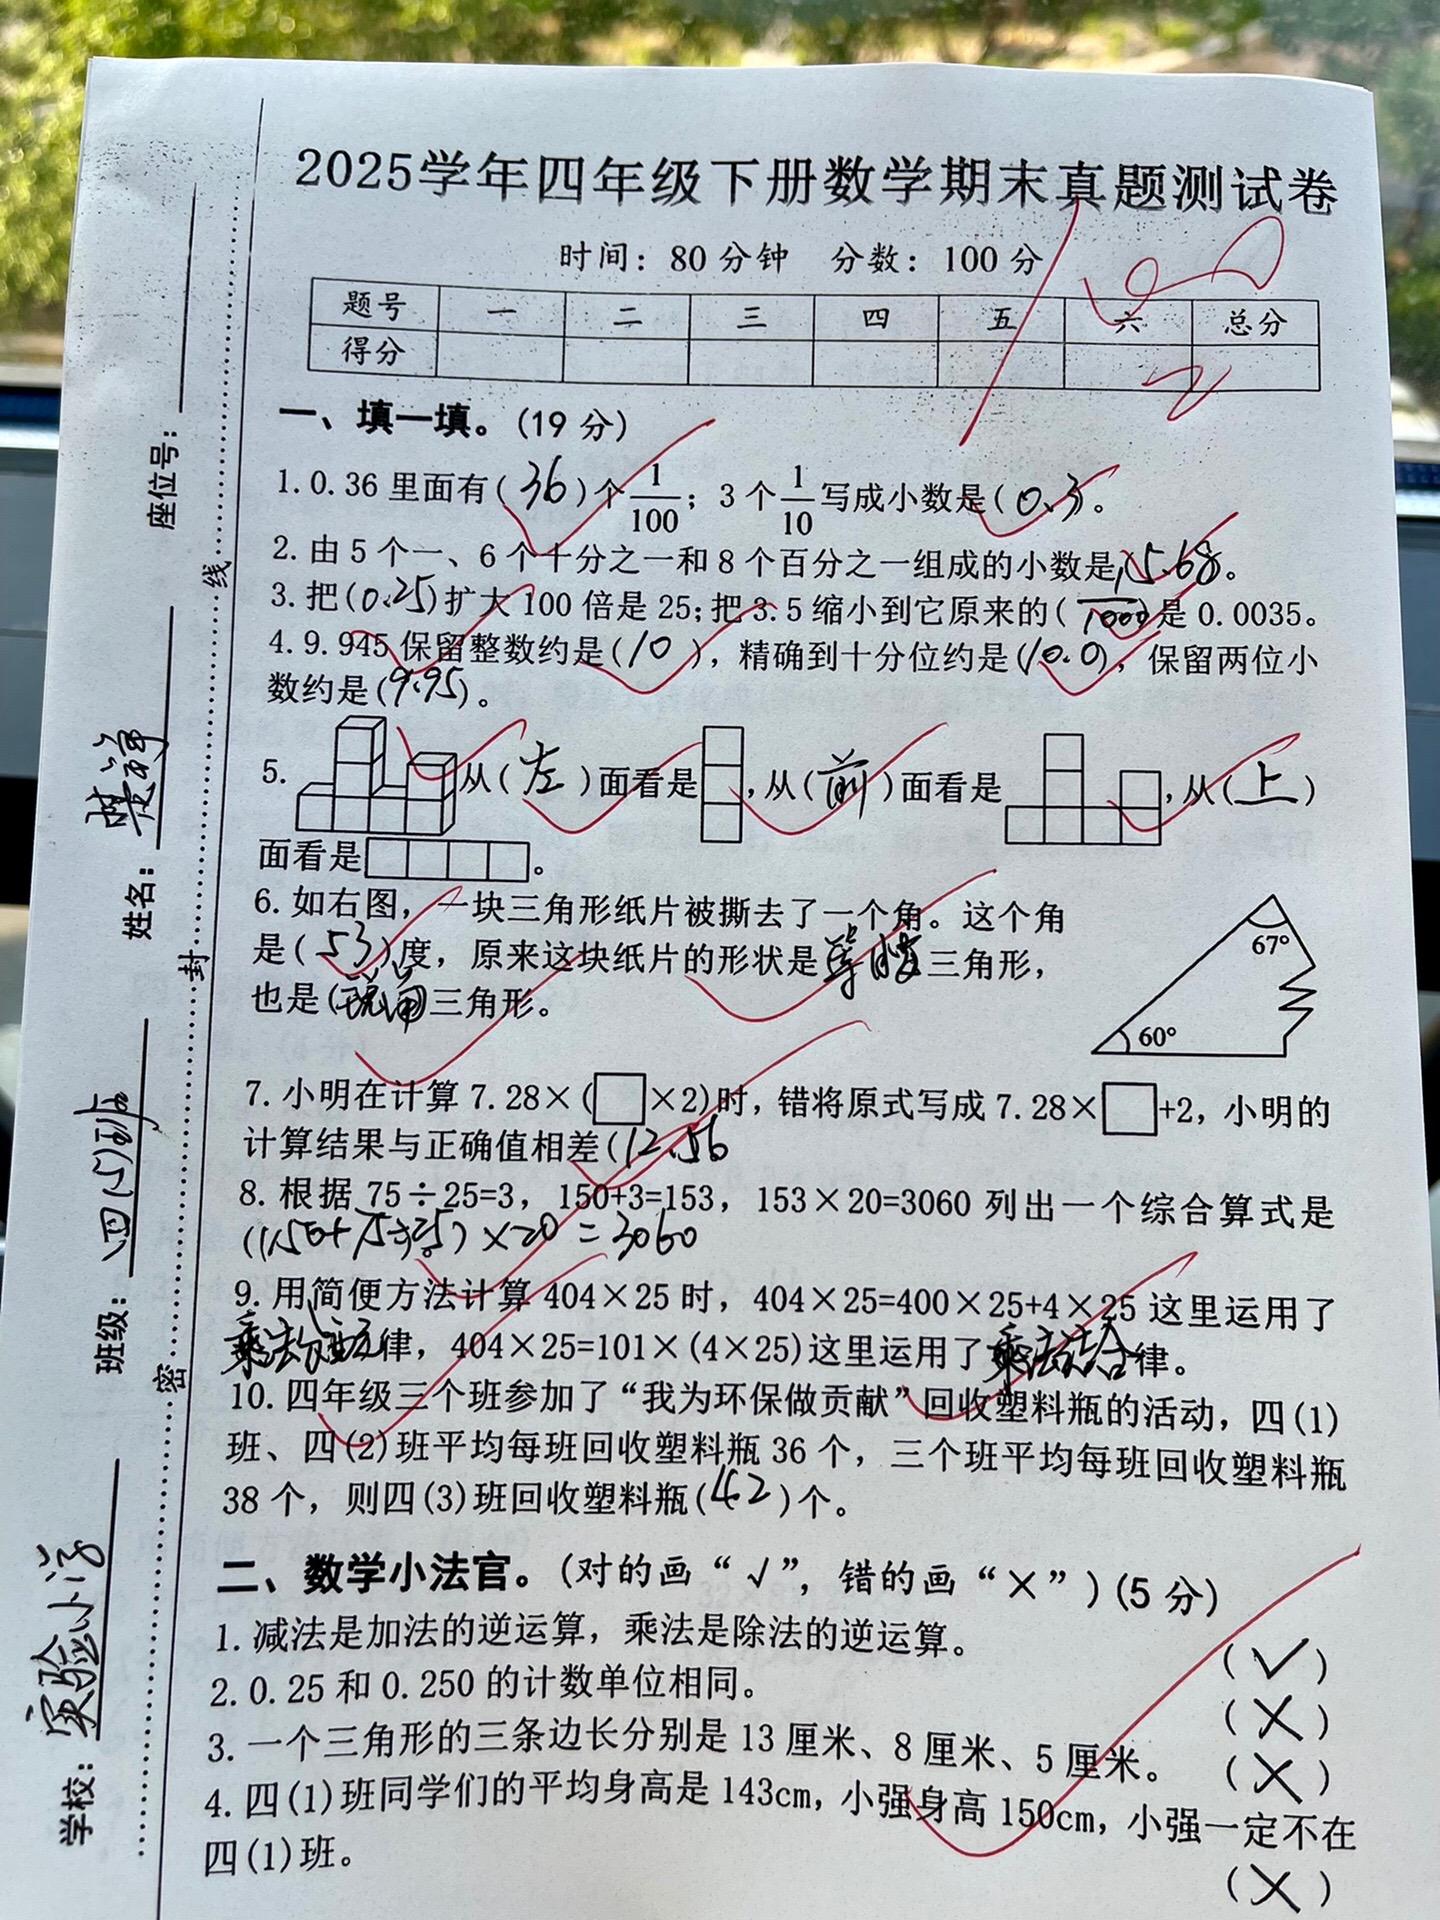 2025学年四年级下册数学期末真题测试卷
时间：80分钟 分数：100分
题号 一 二 三 四 五 六 总分
得分
一、填一填。(19分)
1.0.36里面有(36)个1/100；3个1/10写成小数是(0.3)。
2.由5个一、6个十分之一和8个百分之一组成的小数是(5.68。
3.把(0.25)扩大100倍是25；把3.5缩小到它原来的(1/1000)是0.0035。
4.9.945保留整数约是(10)，精确到十分位约是(10.0)，保留两位小
数约是(9.95)。
5. 从(左)面看是 ，从(前)面看是 ，从(上)
面看是 。
6.如右图，一块三角形纸片被撕去了一个角。这个角
是(53)度，原来这块纸片的形状是等腰三角形，
也是(锐角)三角形。
67°
60°
7.小明在计算7.28×(□×2)时，错将原式写成7.28×□+2，小明的
计算结果与正确值相差(12.56
8.根据75÷25=3，150+3=153，153×20=3060列出一个综合算式是
((150+75÷25)×20=3060
9.用简便方法计算404×25时，404×25=400×25+4×25这里运用了
乘法分配律，404×25=101×(4×25)这里运用了乘法结合律。
10.四年级三个班参加了“我为环保做贡献”回收塑料瓶的活动，四(1)
班、四(2)班平均每班回收塑料瓶36个，三个班平均每班回收塑料瓶
38个，则四(3)班回收塑料瓶(42)个。
二、数学小法官。(对的画“√”，错的画“×”)(5分)
1.减法是加法的逆运算，乘法是除法的逆运算。 (√)
2.0.25和0.250的计数单位相同。 (×)
3.一个三角形的三条边长分别是13厘米、8厘米、5厘米。 (×)
4.四(1)班同学们的平均身高是143cm，小强身高150cm，小强一定不在
四(1)班。 (×)
学校：实验小学
班级：四(5)班
姓名：
座位号：
密 封 线